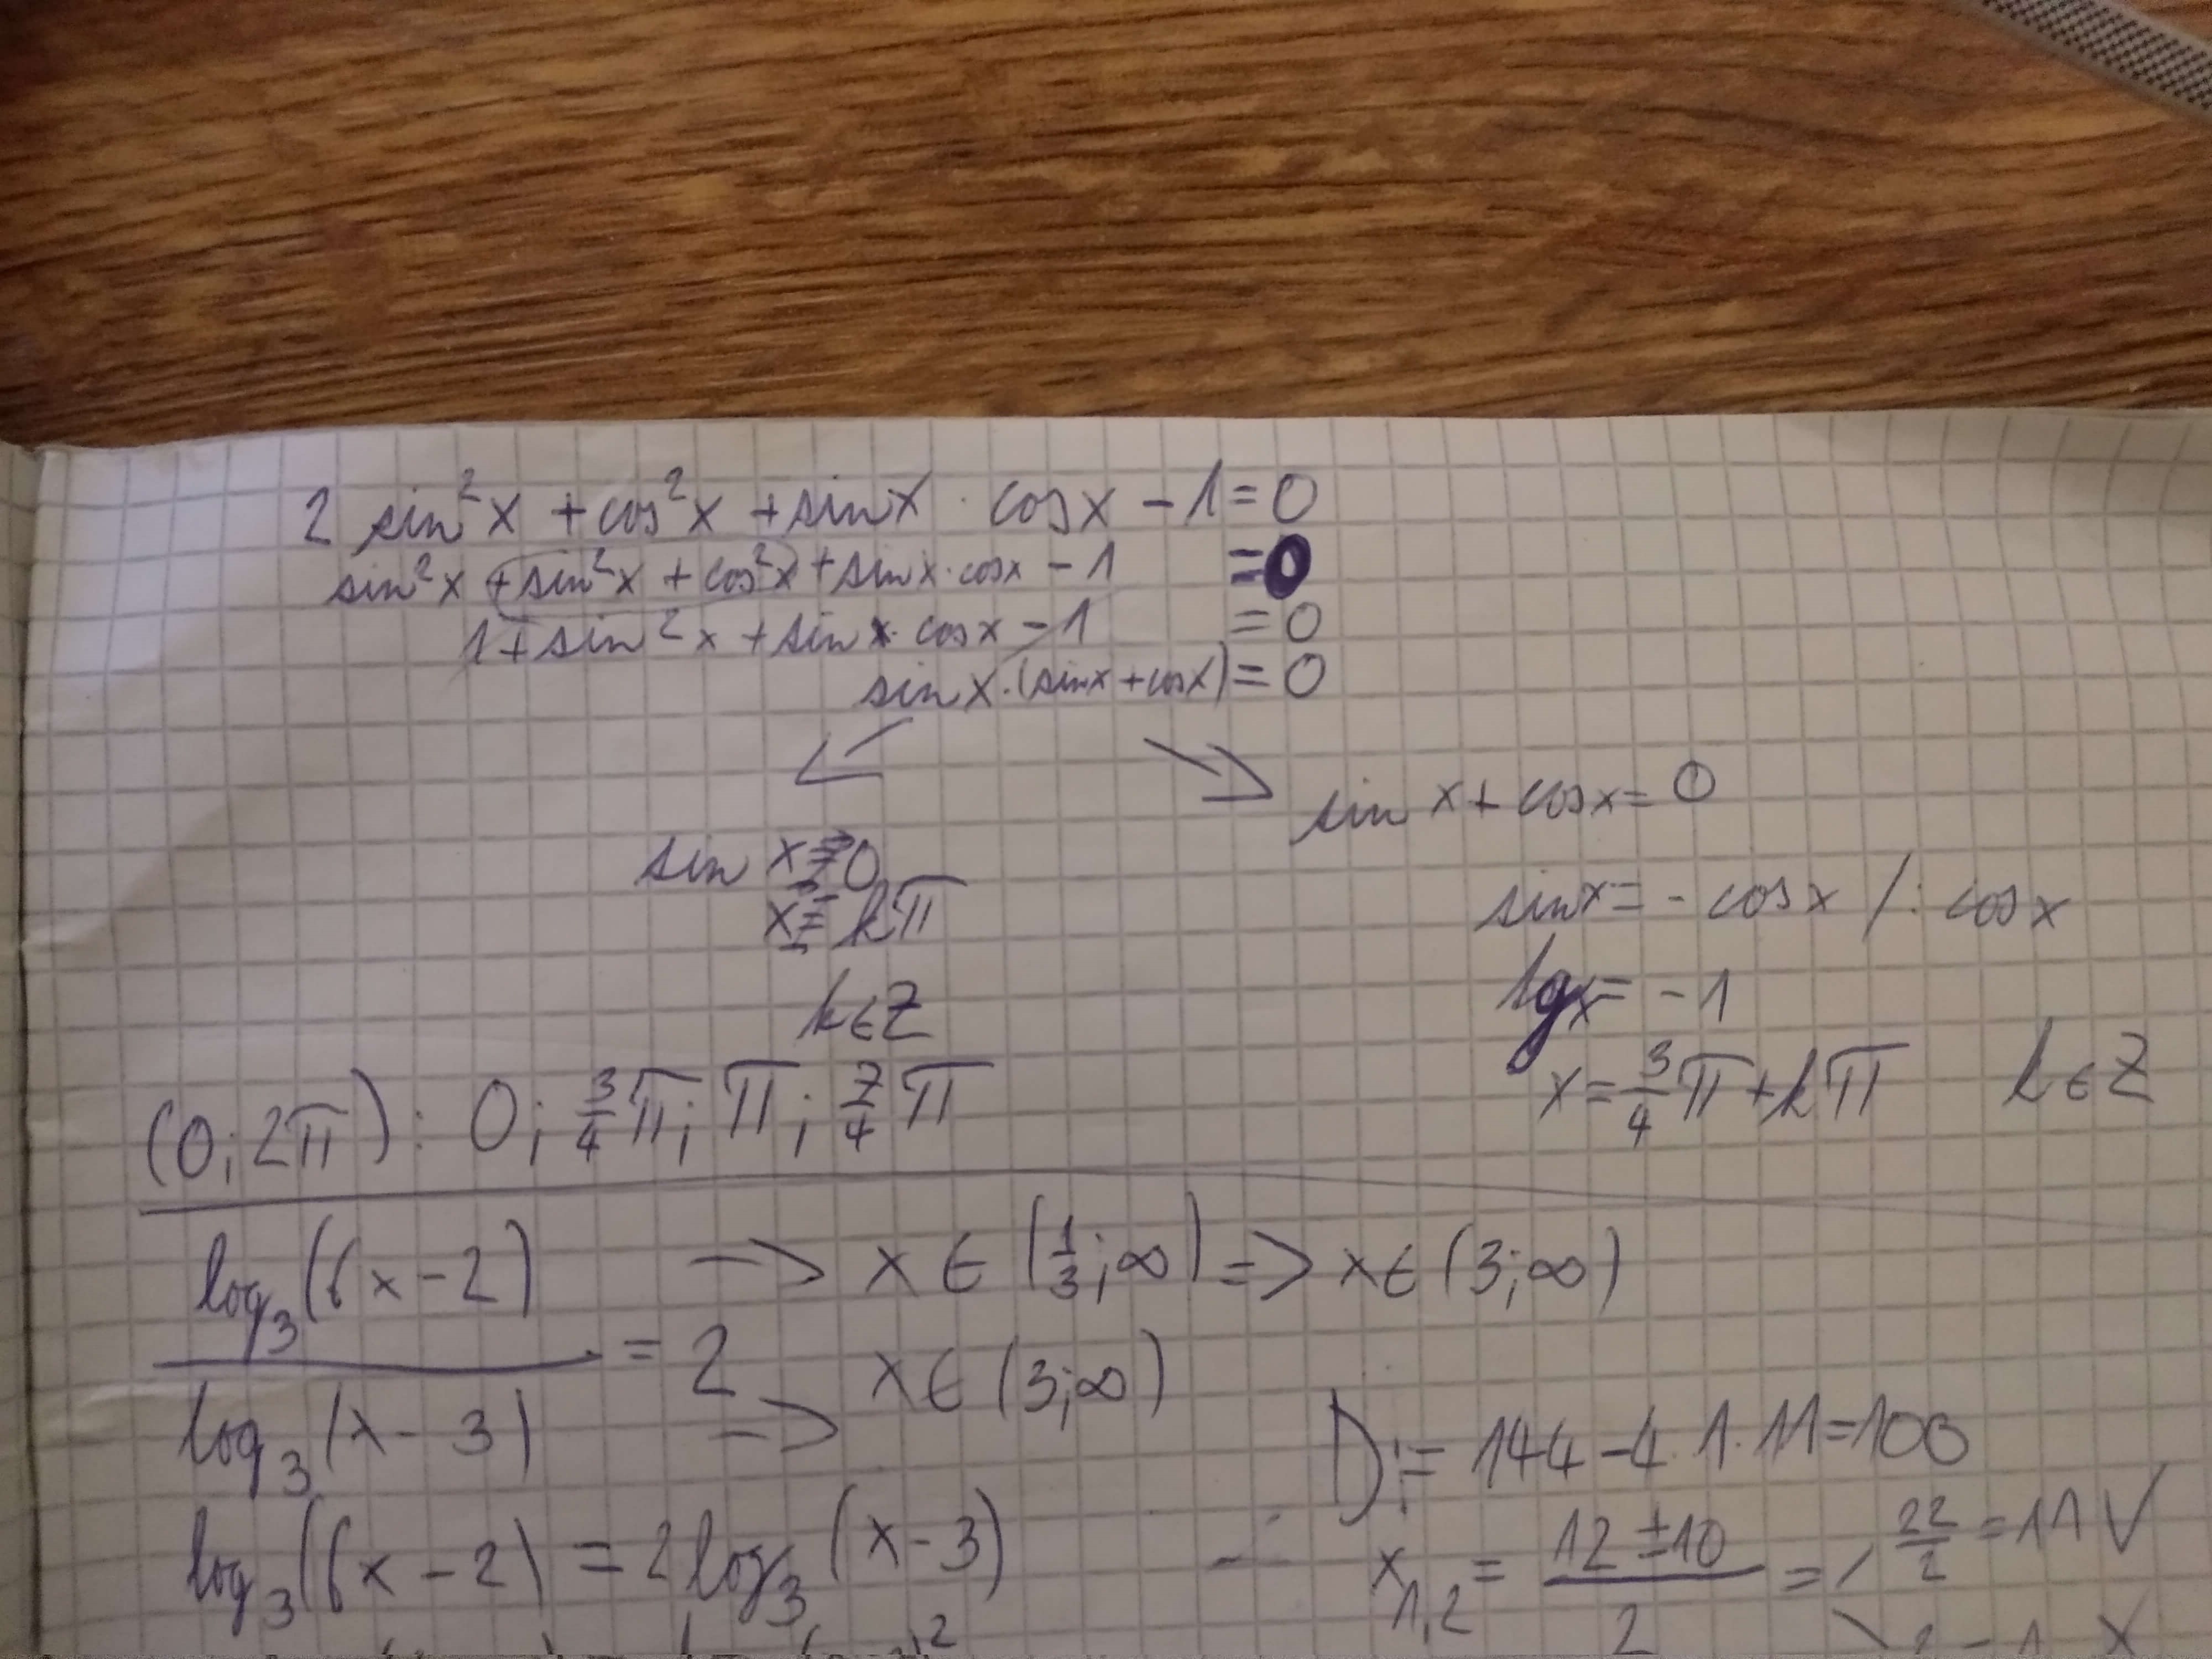 2 sin²x + cos²x + sinx · cosx - 1 = 0
sin²x + sin²x + cos²x + sinx · cosx - 1 = 0
1 + sin²x + sinx · cosx - 1 = 0
sinx · (sinx + cosx) = 0
sin x = 0
x = kπ
k ∈ Z
sin x + cosx = 0
sinx = - cosx / : cosx
tgx = -1
x = 3/4 π + kπ k ∈ Z
(0; 2π) : 0; 3/4 π; π; 7/4 π
log₃(6x - 2) / log₃(x - 3) = 2
→ x ∈ (1/3; ∞) => x ∈ (3; ∞)
=> x ∈ (3; ∞)
log₃(6x - 2) = 2 log₃(x - 3)
D := 144 - 4 · 1 · 11 = 100
x₁,₂ = (12 ± 10) / 2 = 22/2 = 11 ✓